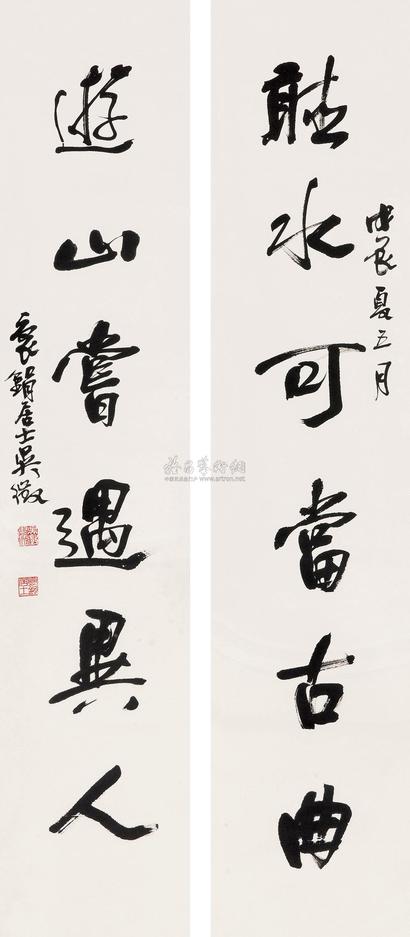 聽水可當古曲
戊辰夏五月
遊山嘗遇異人
裛鋗居士吳徵
www.artron.net